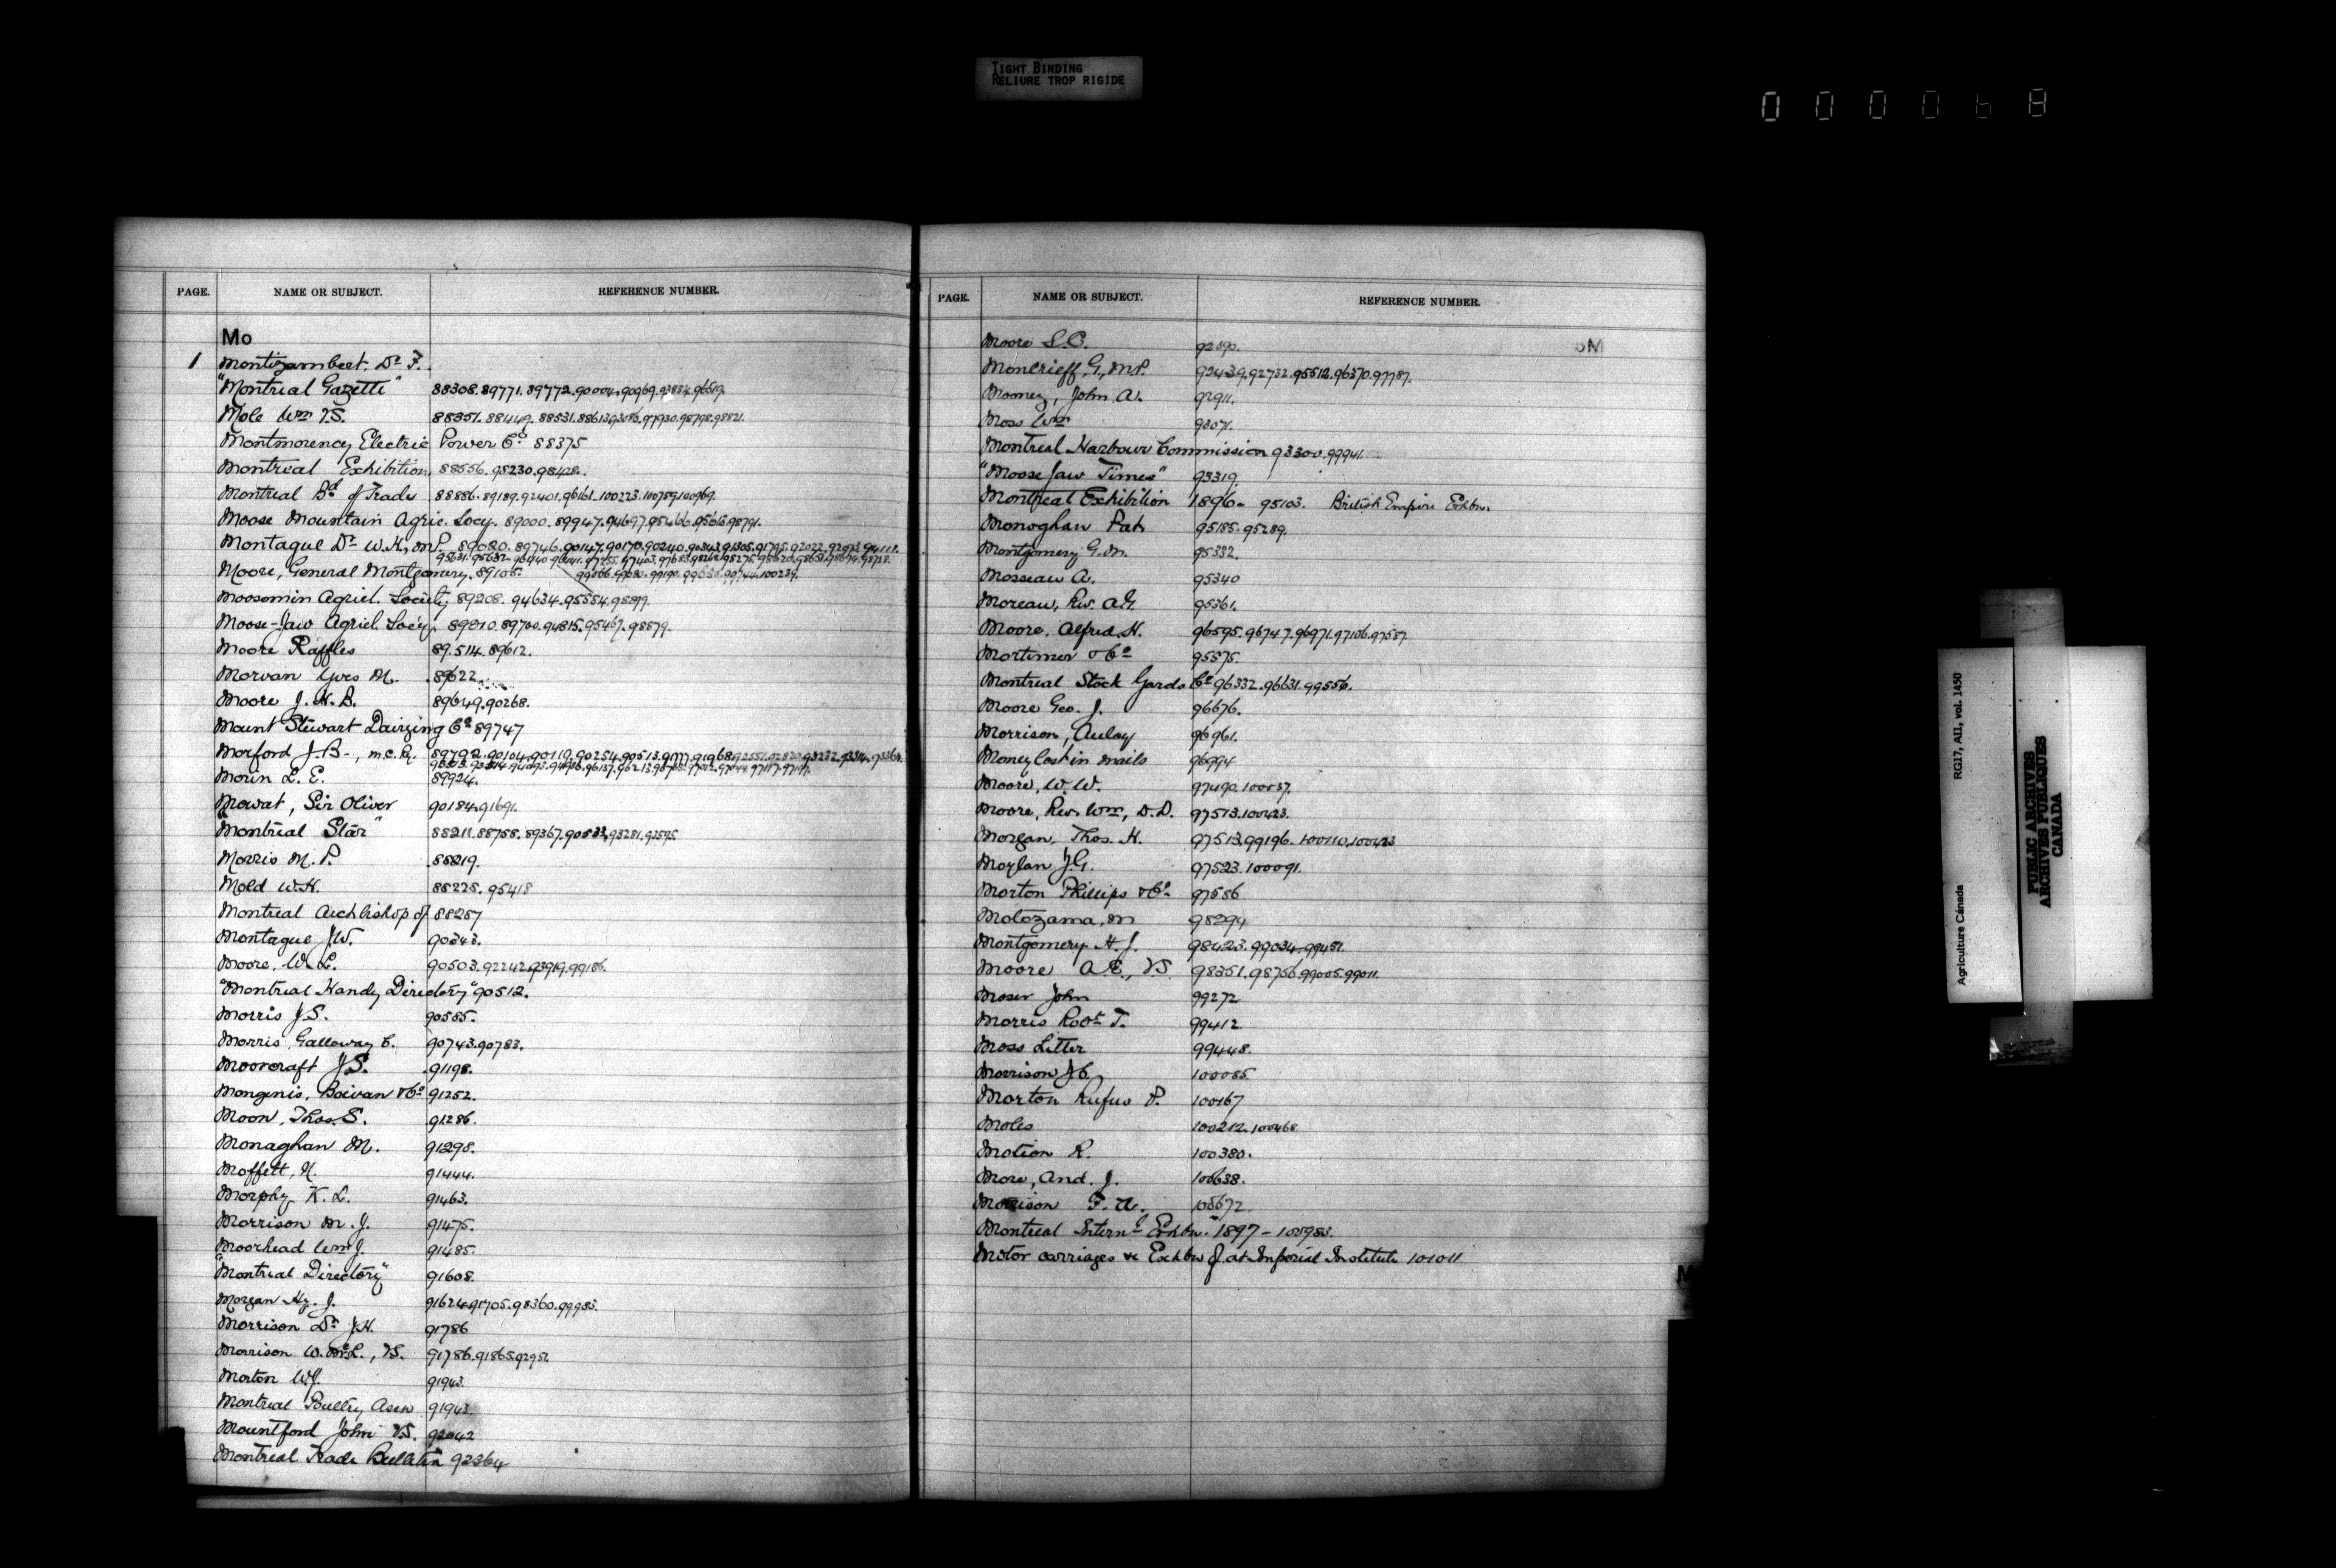 TIGHT BINDING
RELIURE TROP RIGIDE
000068
PAGE. NAME OR SUBJECT. REFERENCE NUMBER.
Mo
1 Montizambert, Dr F.
"Montreal Gazette" 88308. 89771. 89772. 90004. 90969. 93884. 96519.
Mole Wm V.S. 88351. 88449. 88531.
Montmorency Electric Power Co. 88375
Montreal Exhibition 88556. 95230. 98428.
Montreal Bd of Trade 88886. 89189. 92401. 96161. 100223. 100759. 100969.
Moose Mountain Agric. Socy. 89000. 89947. 94697. 95466. 95615. 98791.
Montague Dr W.H., M.P. 89080. 89746. 90147. 90170. 90240. 90343. 91305. 91795. 92022.
Moore, General Montgomery. 89105.
Moosomin Agricl. Society 89208. 94634. 95554. 98899.
Moose-Jaw Agricl. Socy. 89210. 89700. 94815. 95467. 98879.
Moore Raffles 89.514. 89612.
Morvan Yves M. 89622
Moore J.H.B. 89649. 90268.
Mount Stewart Dairying Co 89747
Morford J.B., M.C.Ry. 89792. 90104. 90119. 90254. 90513. 91777. 91968.
Morin L.E. 89924.
Mowat, Sir Oliver 90184. 91691.
"Montreal Star" 88211. 88758. 89367. 90533. 93281. 93595.
Morris M.P. 88219.
Mold W.H. 88225. 95418
Montreal Archbishop of 88287
Montague J.W. 90343.
Moore, W.L. 90503. 92242. 93919. 99186.
"Montreal Handy Directory" 90512.
Morris J.S. 90585.
Morris, Galloway C. 90743. 90783.
Moorcraft J.S. 91198.
Mongenis, Boivan & Co 91252.
Moon, Thos. S. 91286.
Monaghan M. 91298.
Moffett, N. 91444.
Morphy K.L. 91463.
Morrison M.J. 91475.
Moorhead Wm J. 91485.
"Montreal Directory" 91608.
Morgan Hy. J. 91624. 91705. 98360. 99983.
Morrison Dr J.H. 91786
Morrison W. McL., V.S. 91786. 91865. 92952
Morton W.J. 91943.
Montreal Poultry Assn 91943.
Mountford John V.S. 92042
Montreal Trade Bulletin 92364
PAGE. NAME OR SUBJECT. REFERENCE NUMBER.
Mo
Moore S.C. 92390.
Moncrieff, G., M.P. 92439. 92732. 95512. 96370. 97787.
Mooney, John A. 92911.
Moss Wm 93071.
Montreal Harbour Commission 93300. 99941.
"Moose Jaw Times" 93319.
Montreal Exhibition 1896- 95103. British Empire Exhbn.
Monoghan Pat. 95185. 95289.
Montgomery G.M. 95332.
Mosseau A. 95340
Moreau, Rev. 95361.
Moore, Alfred H. 96595. 96747. 96971. 97106. 97587
Mortimer & Co 95575.
Montreal Stock Yards Co 96332. 96631. 99556.
Moore Geo. J. 96676.
Morrison, Aulay 96961.
Money lost in mails 96994
Moore, W.W. 97490. 100037.
Moore, Rev. Wm, D.D. 97513. 100423.
Morgan, Thos. H. 97513. 99196. 100110. 100423
Moylan J.G. 97523. 100091.
Morton Phillips & Co. 97586
Motozama, M 98294
Montgomery H.J. 98423. 99034. 99451.
Moore A.E., V.S. 98351. 98756. 99005. 99011.
Moser John 99272
Morris Robt T. 99412
Moss Litter 99448.
Morrison J.C. 100085.
Morton Rufus P. 100167
Moles 100212. 100468
Motion R. 100380.
More, And. J. 100638.
Morrison F. 100672.
Montreal Internl Exhbn. 1897 - 100983.
Motor carriages &c Exhbn of at Imperial Institute 101011
M
RG17, AII, vol. 1450
Agriculture Canada
PUBLIC ARCHIVES
ARCHIVES PUBLIQUES
CANADA